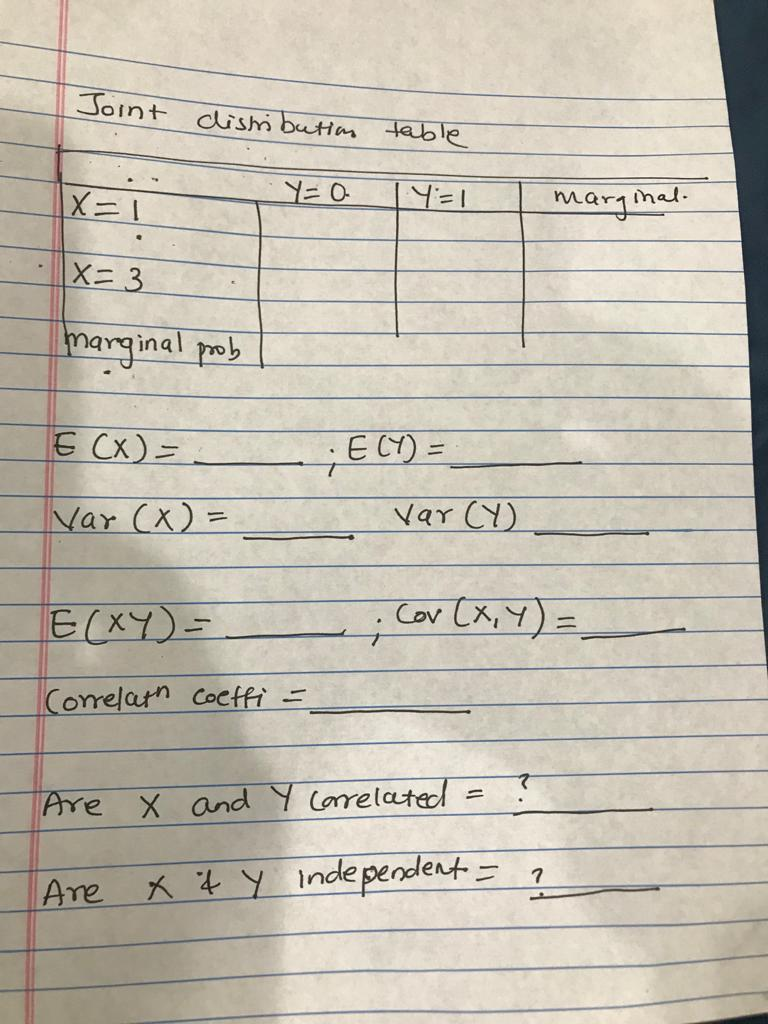 Joint distribution table
Y=0 Y=1 marginal.
X=1
X=3
marginal prob
E(X)= ______ ; E(Y)= ______
Var(X)= ______ Var(Y) ______
E(XY)= ______ ; Cov(X,Y)= ______
Correlatn coeffi = ______
Are X and Y Correlated = ?______
Are X & Y independent = ?______